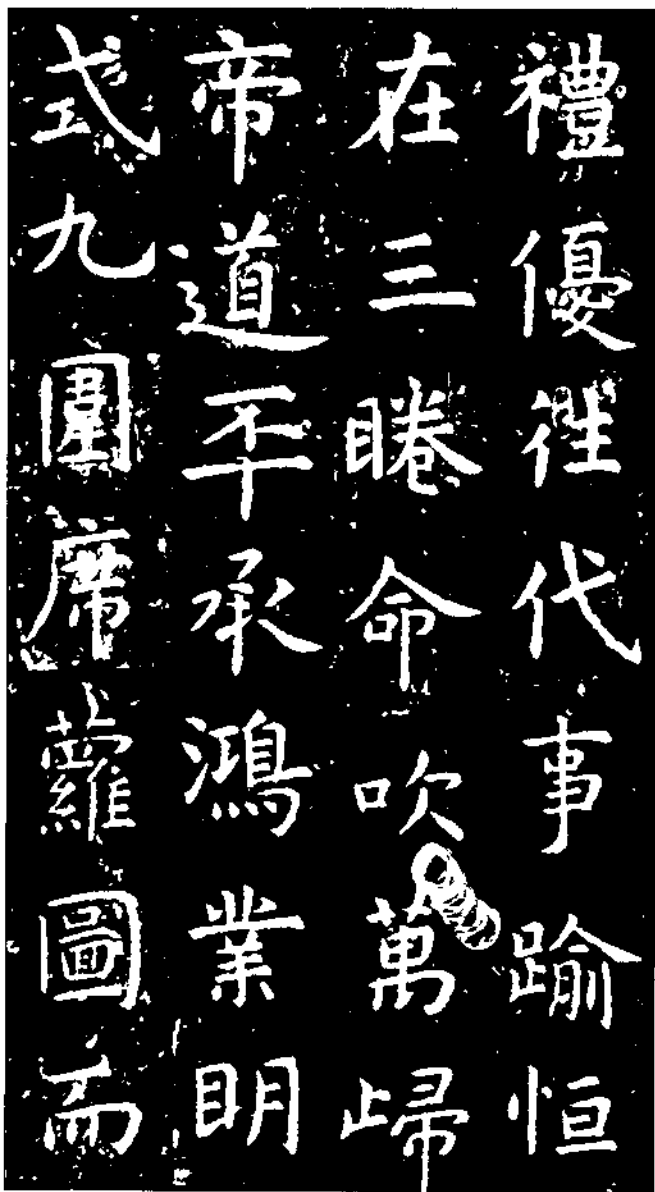 禮優徃代事踰恒
在三睠命吹萬歸
帝道丕承鴻業明
式九圍席蘿圖而